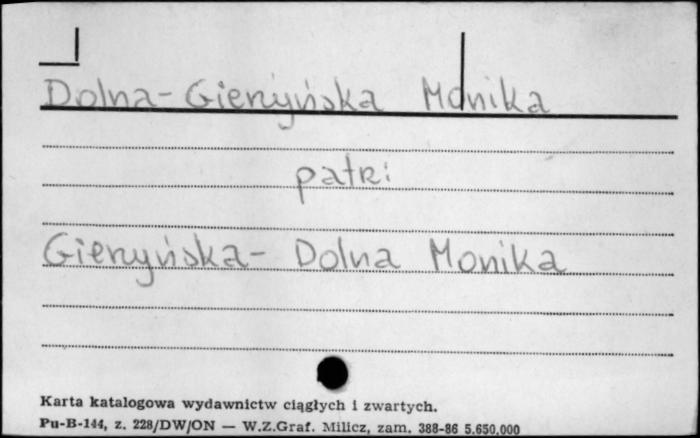 Dolna-Gierzyńska Monika
patrz:
Gierzyńska- Dolna Monika
Karta katalogowa wydawnictw ciągłych i zwartych.
Pu-B-144, z. 228/DW/ON — W.Z.Graf. Milicz, zam. 388-86 5.650.000